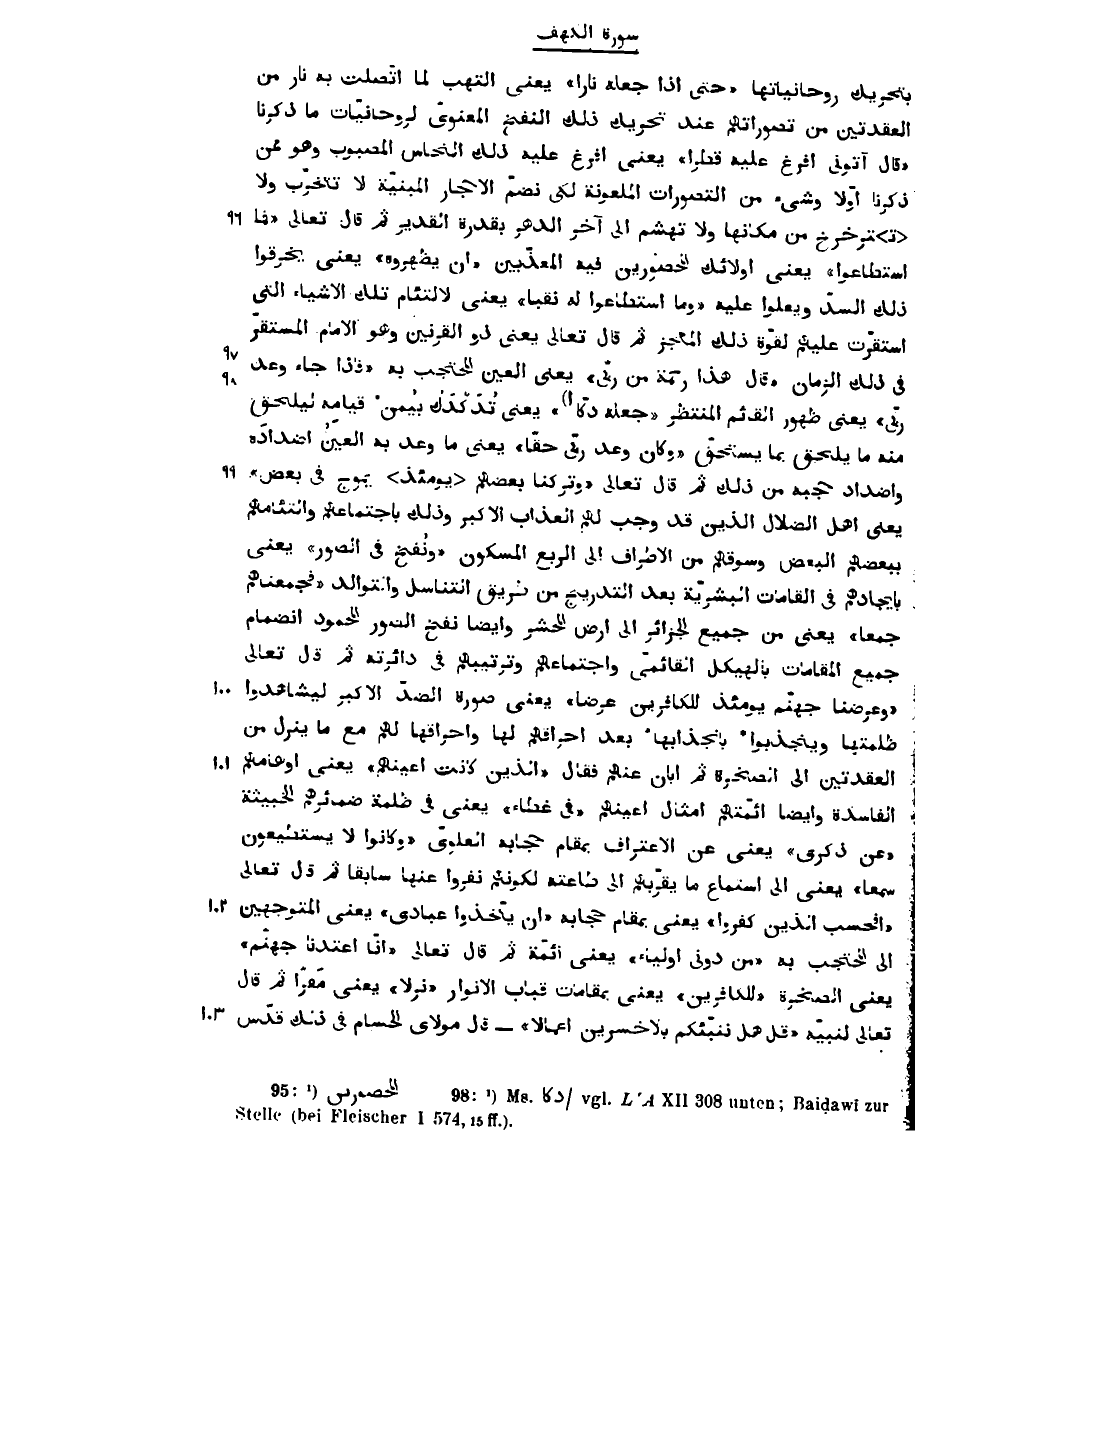 سورة الكهف
بتحريك روحانياتها «حتى اذا جعله نارا» يعنى التهب لما اتّصلت به نار من
العقدتين من تصوراتهم عند تحريك ذلك النفخ المعنوىّ لروحانيّات ما ذكرنا
«قال آتونى افرغ عليه قطرا» يعنى افرغ عليه ذلك النحاس المصبوب وهو ممن
ذكرنا اوّلا وشىء من التصورات الملعونة لكى تضمّ الاحجار المبنيّة لا تتخرّب ولا
<تـ>تزخرخ من مكانها ولا تهشم الى آخر الدهر بقدرة القدير ثم قال تعالى «فما ٩٦
استطاعوا» يعنى اولائك المحصورين فيه المعذّبين «ان يظهروه» يعنى يخرقوا
ذلك السدّ ويعلوا عليه «وما استطاعوا له نقبا» يعنى لالتئام تلك الاشياء التى
استقرّت عليهم لقوّة ذلك الحاجز ثم قال تعالى يعنى ذو القرنين وهو الامام المستقرّ
فى ذلك الزمان «قال هذا رحمة من ربّى» يعنى العين المحتجب به «فاذا جاء وعد ٩٧ ٩٨
ربّى» يعنى ظهور القائم المنتظر «جعله دكّا¹)» يعنى تُدَكْدَك بيُمن قيامه ليلحق
منه ما يلحق بما يستحقّ «وكان وعد ربّى حقّا» يعنى ما وعد به العينُ اضدادَه
واضداد حجبه من ذلك ثم قال تعالى «وتركنا بعضهم <يومئذ> يموج فى بعض» ٩٩
يعنى اهل الضلال الذين قد وجب لهم العذاب الاكبر وذلك باجتماعهم والتئامهم
ببعضهم البعض وسوقهم من الاطراف الى الربع المسكون «ونُفخ فى الصور» يعنى
بايجادهم فى القامات البشريّة بعد التدريج من طريق التناسل والتوالد «فجمعناهم
جمعا» يعنى من جميع الجزائر الى ارض المحشر وايضا نفخ الصور المحمود انضمام
جميع المقامات بالهيكل القائمىّ واجتماعهم وترتيبهم فى دائرته ثم قال تعالى
«وعرضنا جهنّم يومئذ للكافرين عرضا» يعنى صورة الضدّ الاكبر ليشاهدوا ١٠٠
ظلمتها وينجذبوا بانجذابها بعد احراقهم لها واحراقها لهم مع ما ينزل من
العقدتين الى الصخرة ثم ابان عنهم فقال «الذين كانت اعينهم» يعنى اوهامهم ١٠١
الفاسدة وايضا ائمّتهم امثال اعينهم «فى غطاء» يعنى فى ظلمة ضمائرهم الخبيثة
«عن ذكرى» يعنى عن الاعتراف بمقام حجابه العلوىّ «وكانوا لا يستطيعون
سمعا» يعنى الى استماع ما يقرّبهم الى طاعته لكونهم نفروا عنها سابقا ثم قال تعالى
«افحسب الذين كفروا» يعنى بمقام حجابه «ان يتّخذوا عبادى» يعنى المتوجهين ١٠٢
الى المحتجب به «من دونى اولياء» يعنى ائمّة ثم قال تعالى «انّا اعتدنا جهنّم»
يعنى الصخرة «للكافرين» يعنى بمقامات قباب الانوار «نزلا» يعنى مَقرّا ثم قال
تعالى لنبيّه «قل هل ننبّئكم بالاخسرين اعمالا» — قال مولاى الحسام فى ذلك قدّس ١٠٣
95: ¹) الحصورىں 98: ¹) Ms. دكا/ vgl. L‘A XII 308 unten; Baiḍawī zur
Stelle (bei Fleischer I 574, 15 ff.).